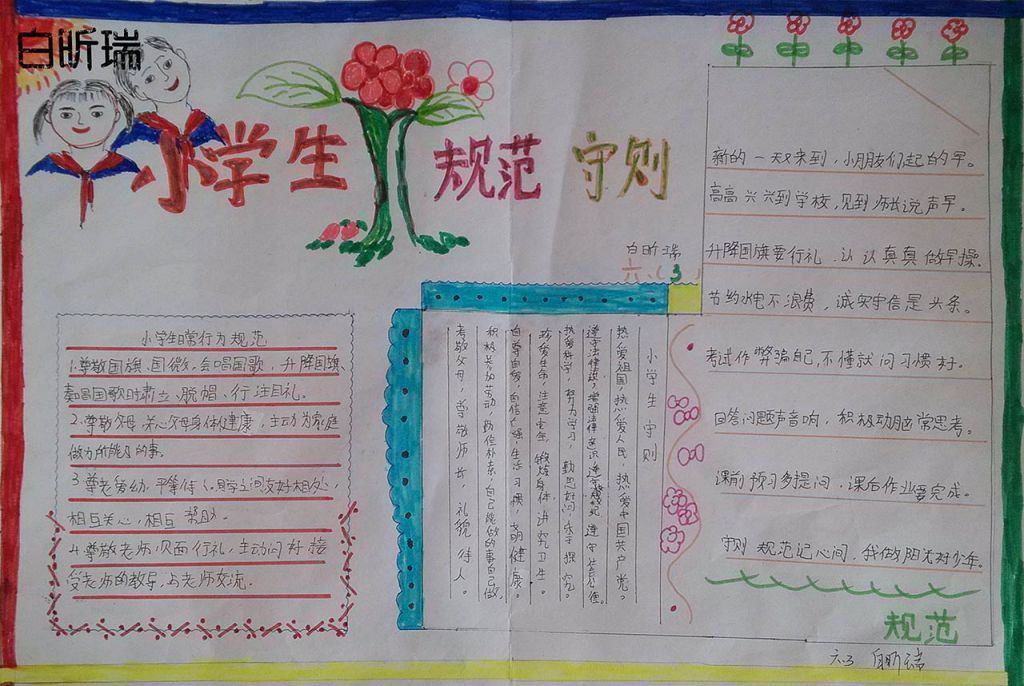 白昕瑞
小学生 规范 守则
白昕瑞
六.(3)
小学生日常行为规范
1.尊敬国旗、国徽,会唱国歌,升降国旗、
奏唱国歌时肃立、脱帽、行注目礼。
2.尊敬父母,关心父母身体健康,主动为家庭
做力所能及的事。
3.尊老爱幼,平等待人。同学之间友好相处,
相互关心,相互帮助。
4.尊敬老师,见面行礼,主动问好,接
受老师的教导,与老师交流。
小学生守则
热爱祖国,热爱人民,热爱中国共产党。
遵守法律法规,增强法律意识,遵守校规校纪,遵守社会公德。
热爱科学,努力学习,勤思好问,乐于探究。
珍爱生命,注意安全,锻炼身体,讲究卫生。
自尊自爱,自信自强,生活习惯,文明健康。
积极参加劳动,勤俭朴素,自己能做的事自己做。
孝敬父母,尊敬师长,礼貌待人。
新的一天又来到,小朋友们起的早。
高高兴兴到学校,见到师长说声早。
升降国旗要行礼,认认真真做早操。
节约水电不浪费,诚实守信是头条。
考试作弊骗自己,不懂就问习惯好。
回答问题声音响,积极动脑常思考。
课前预习多提问,课后作业要完成。
守则规范记心间,我做阳光好少年。
规范
六.3 白昕瑞